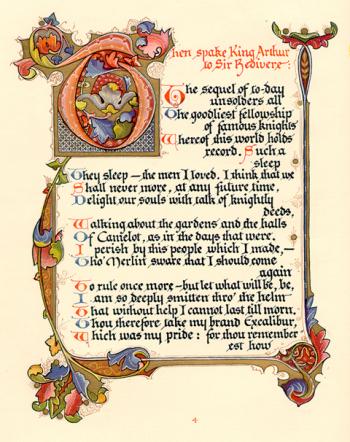 Then spake King Arthur
to Sir Bedivere:
The sequel of to-day
unsolders all
The goodliest fellowship
of famous knights
Whereof this world holds
record. Such a
sleep
They sleep — the men I loved. I think that we
Shall never more, at any future time,
Delight our souls with talk of knightly
deeds,
Walking about the gardens and the halls
Of Camelot, as in the days that were.
I perish by this people which I made, —
Tho' Merlin sware that I should come
again
To rule once more — but let what will be, be,
I am so deeply smitten thro' the helm
That without help I cannot last till morn.
Thou therefore take my brand Excalibur,
Which was my pride: for thou remember
est how
4